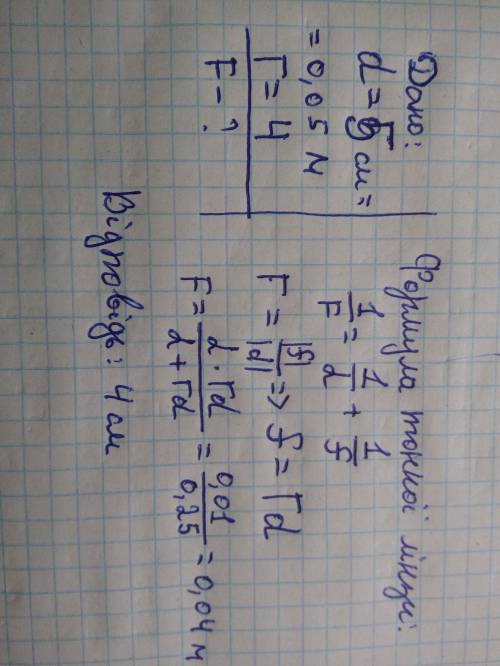 Дано:
d = 5 см =
= 0,05 м
Г = 4
F - ?
Формула тонкої лінзи:
1/F = 1/d + 1/f
Г = |f|/|d| => f = Гd
F = d · Гd / d + Гd = 0,01 / 0,25 = 0,04 м
Відповідь: 4 см